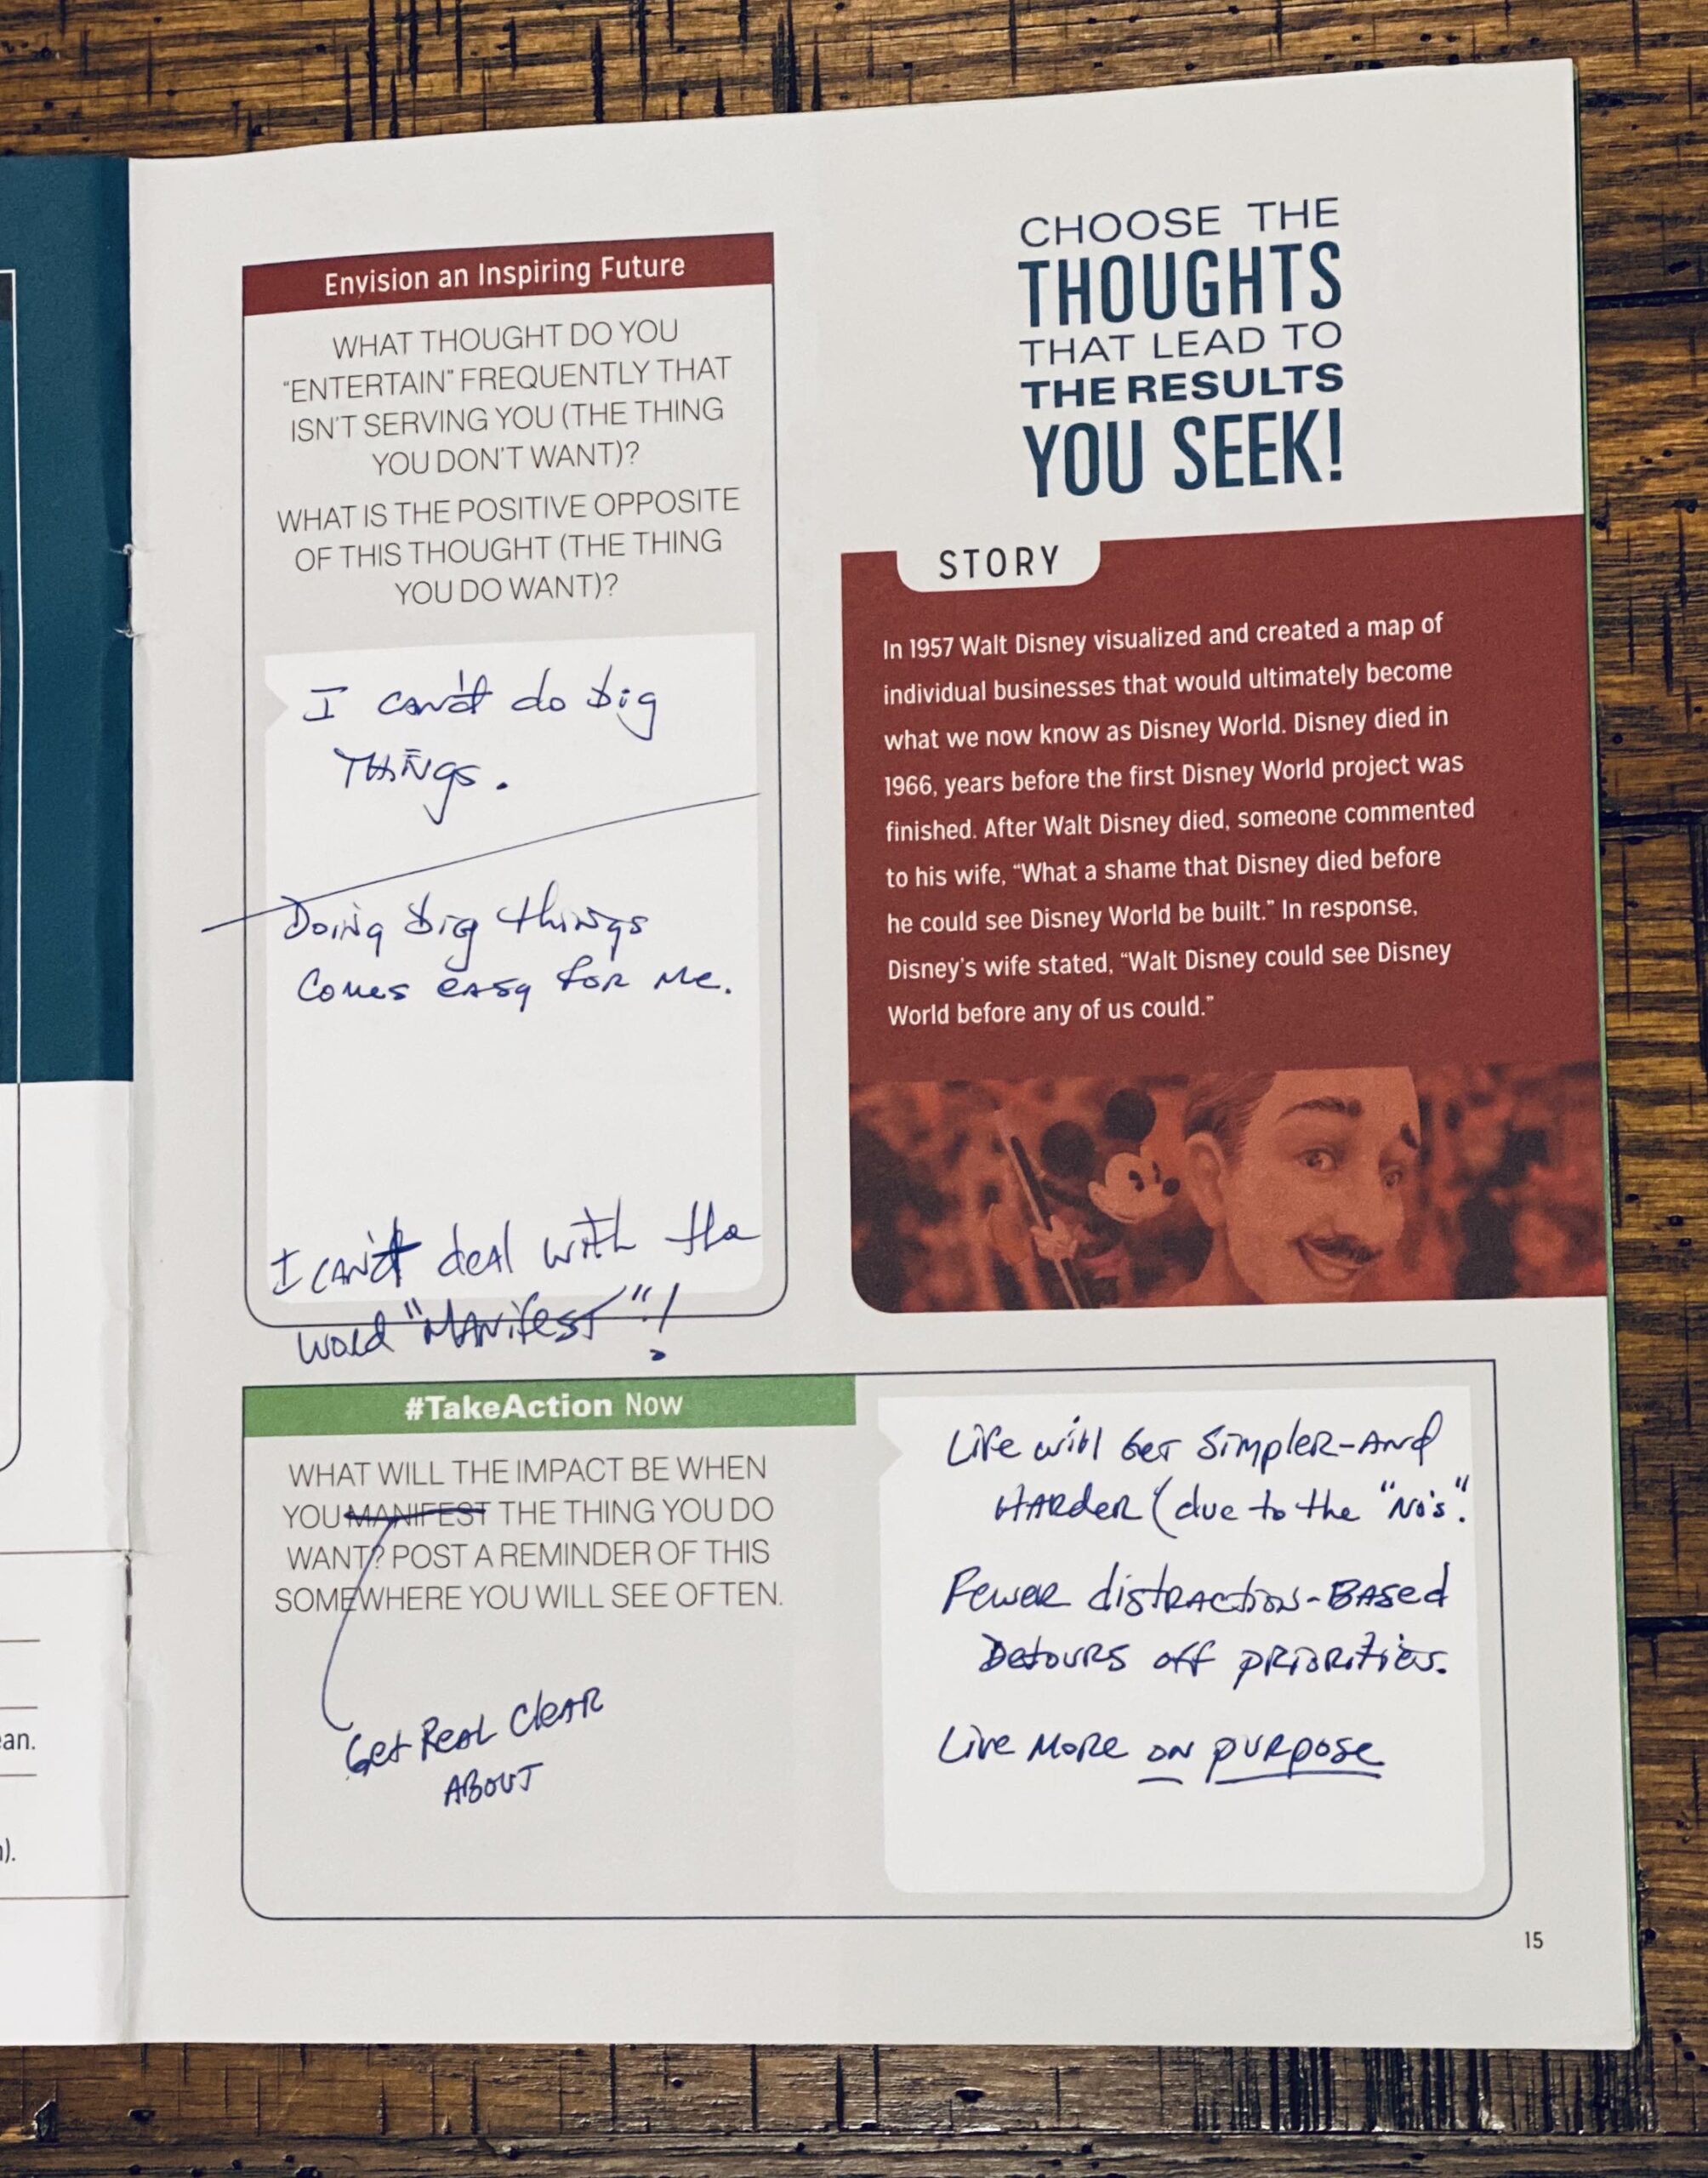 Envision an Inspiring Future
WHAT THOUGHT DO YOU
"ENTERTAIN" FREQUENTLY THAT
ISN'T SERVING YOU (THE THING
YOU DON'T WANT)?
WHAT IS THE POSITIVE OPPOSITE
OF THIS THOUGHT (THE THING
YOU DO WANT)?
I can't do big
THINgs.
Doing big things
Comes easy for me.
I can't deal with the
word "Manifest"!
CHOOSE THE
THOUGHTS
THAT LEAD TO
THE RESULTS
YOU SEEK!
STORY
In 1957 Walt Disney visualized and created a map of
individual businesses that would ultimately become
what we now know as Disney World. Disney died in
1966, years before the first Disney World project was
finished. After Walt Disney died, someone commented
to his wife, “What a shame that Disney died before
he could see Disney World be built.” In response,
Disney’s wife stated, “Walt Disney could see Disney
World before any of us could.”
#TakeAction Now
WHAT WILL THE IMPACT BE WHEN
YOU MANIFEST THE THING YOU DO
WANT? POST A REMINDER OF THIS
SOMEWHERE YOU WILL SEE OFTEN.
Get Real Clear
ABOUT
Life will Get Simpler-And
HARDER (due to the "No's".
Fewer distraction-Based
Detours off priorities.
Live More on purpose
an.
).
15